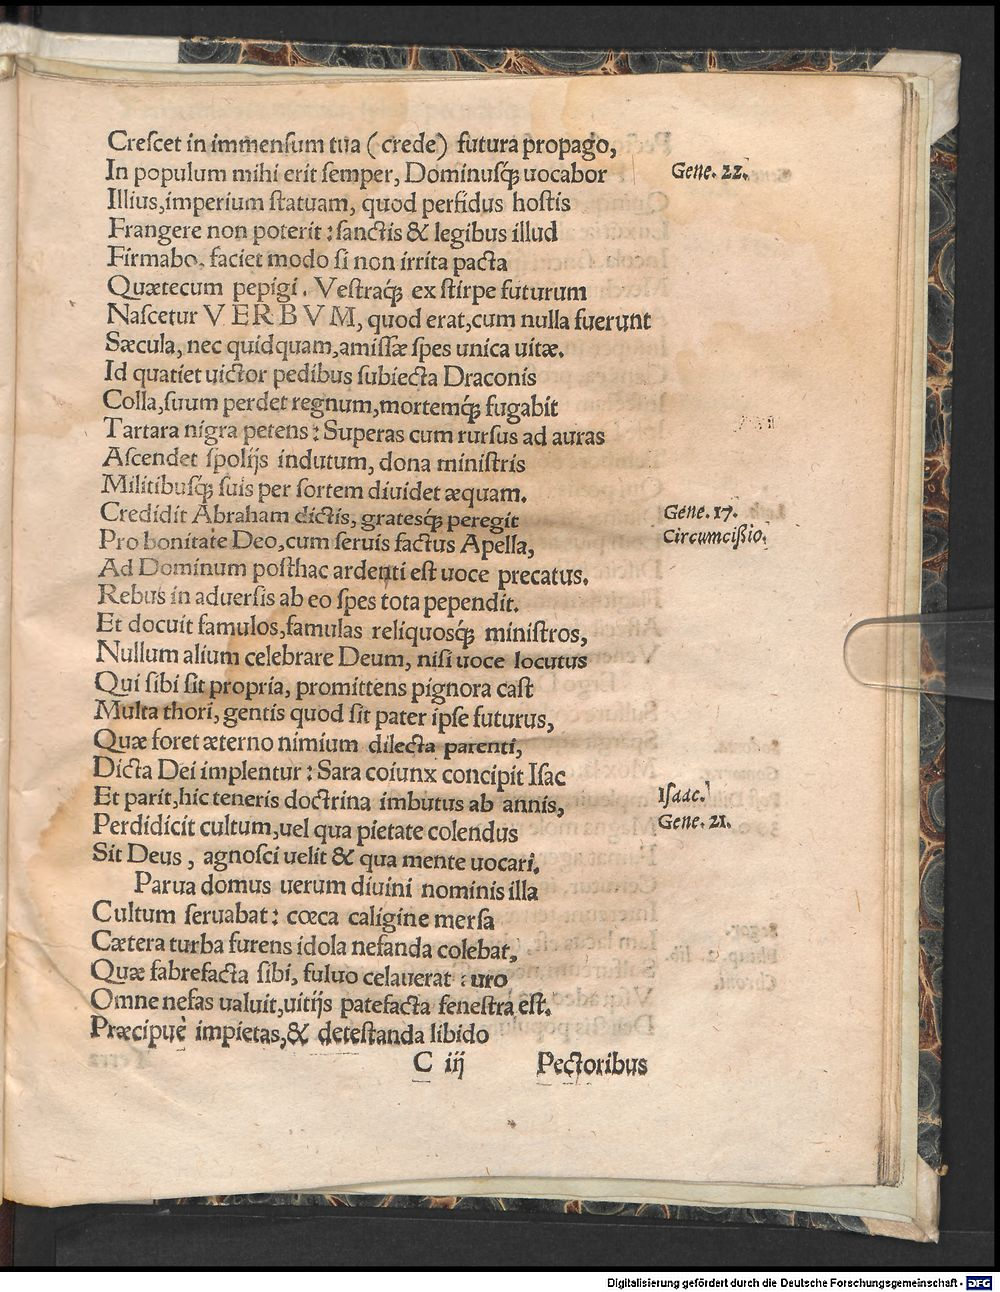 Creſcet in immenſum tua (crede) futura propago,
In populum mihi erit ſemper, Dominuſq́; uocabor
Gene. 22.
Illius, imperium ſtatuam, quod perfidus hoſtis
Frangere non poterit: ſanctis & legibus illud
Firmabo, faciet modo ſi non irrita pacta
Quætecum pepigi. Veſtraq́; ex ſtirpe futurum
Naſcetur VERBVM, quod erat, cum nulla fuerunt
Sæcula, nec quidquam, amiſſæ ſpes unica uitæ.
Id quatiet uictor pedibus ſubiecta Draconis
Colla, ſuum perdet regnum, mortemq́; fugabit
Tartara nigra petens: Superas cum rurſus ad auras
Aſcendet ſpolijs indutum, dona miniſtris
Militibuſq́; ſuis per ſortem diuidet æquam.
Credidit Abraham dictis, grateſq́; peregit
Gene. 17.
Pro bonitate Deo, cum ſeruis factus Apella,
Circumcißio.
Ad Dominum poſthac ardenti eſt uoce precatus.
Rebus in aduerſis ab eo ſpes tota pependit.
Et docuit famulos, famulas reliquoſq́; miniſtros,
Nullum alium celebrare Deum, niſi uoce locutus
Qui ſibi ſit propria, promittens pignora caſt
Multa thori, gentis quod ſit pater ipſe futurus,
Quæ foret æterno nimium dilecta parenti,
Dicta Dei implentur: Sara coiunx concipit Iſac
Et parit, hic teneris doctrina imbutus ab annis,
Iſaac.
Perdidicit cultum, uel qua pietate colendus
Gene. 21.
Sit Deus, agnoſci uelit & qua mente uocari.
Parua domus uerum diuini nominis illa
Cultum ſeruabat: cœca caligine merſa
Cætera turba furens idola nefanda colebat,
Quæ fabrefacta ſibi, fuluo celauerat uro
Omne nefas ualuit, uitijs patefacta feneſtra eſt.
Præcipuè impietas, & deteſtanda libido
C iij Pectoribus
Digitalisierung gefördert durch die Deutsche Forschungsgemeinschaft - DFG